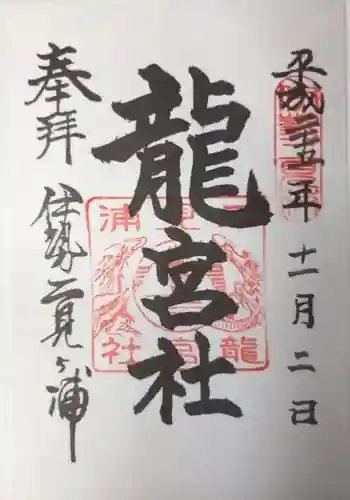 平成二十五年十一月二日
龍宮社
奉拝
伊勢二見ヶ浦